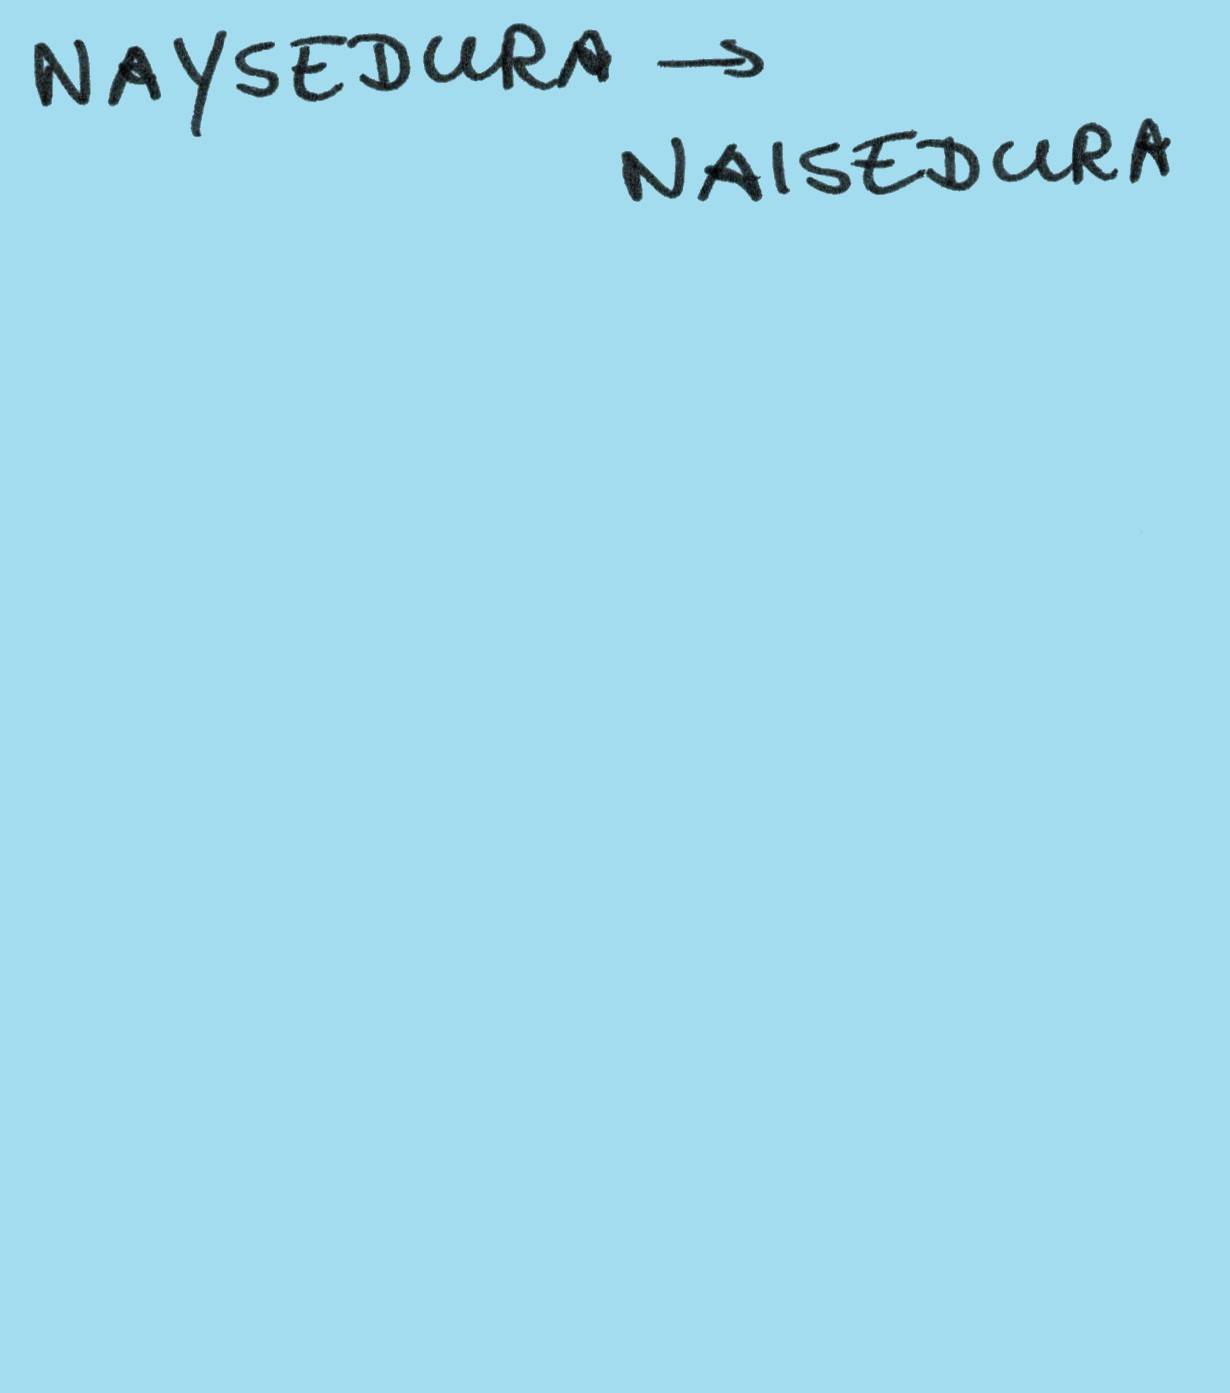 NAYSEDURA →
NAISEDURA